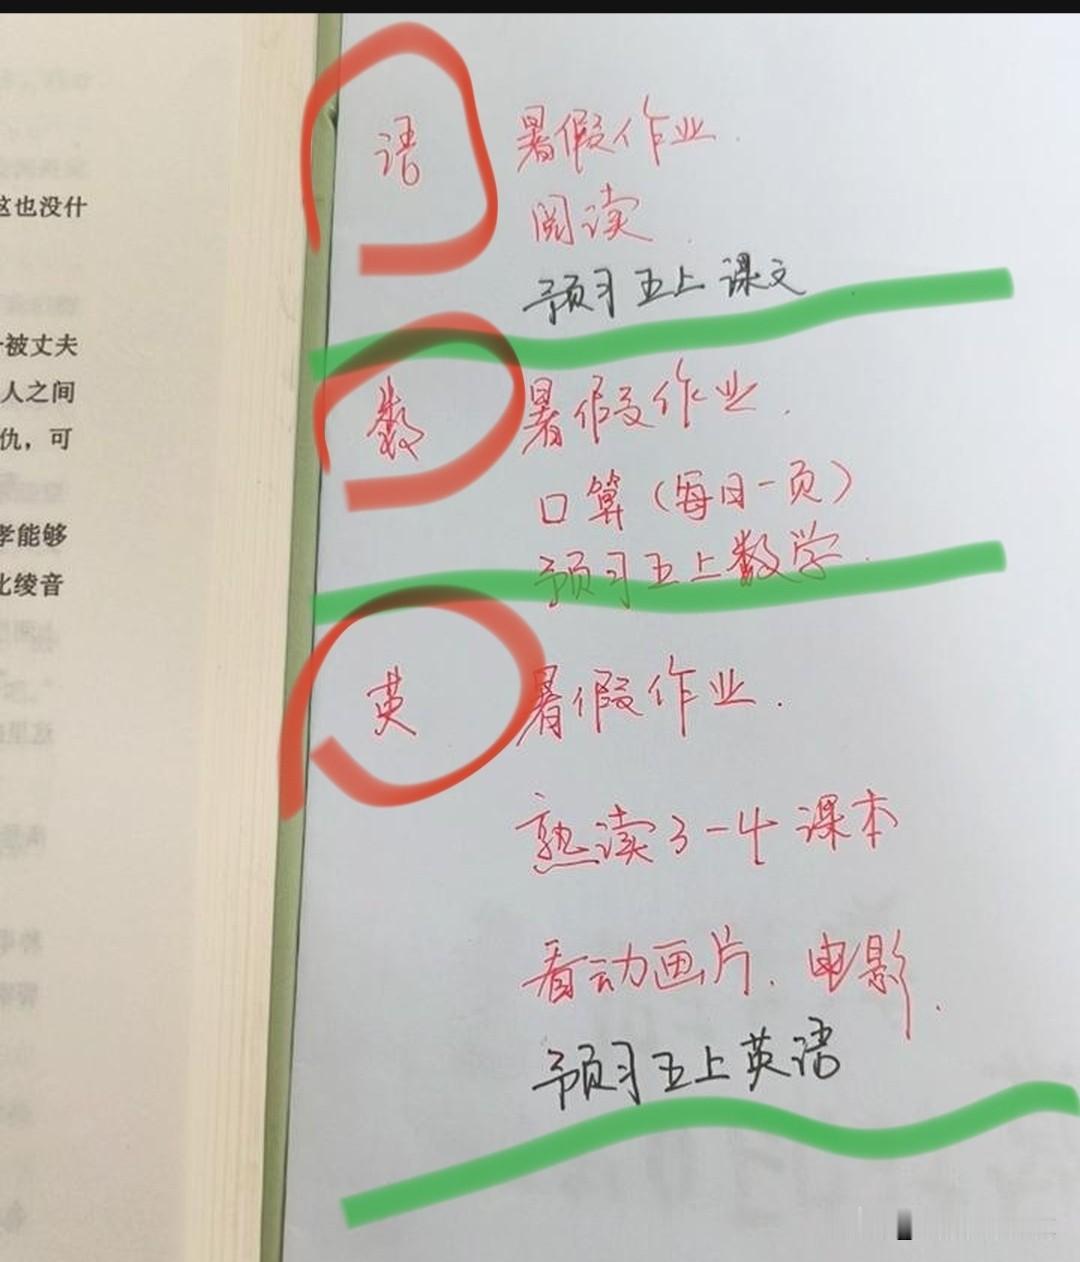 这也没什
被丈夫
人之间
仇，可
孝能够
比绫音
语 暑假作业.
阅读.
预习五上课文
数 暑假作业.
口算(每日一页)
预习五上数学.
英 暑假作业.
熟读3-4课本
看动画片.电影.
预习五上英语